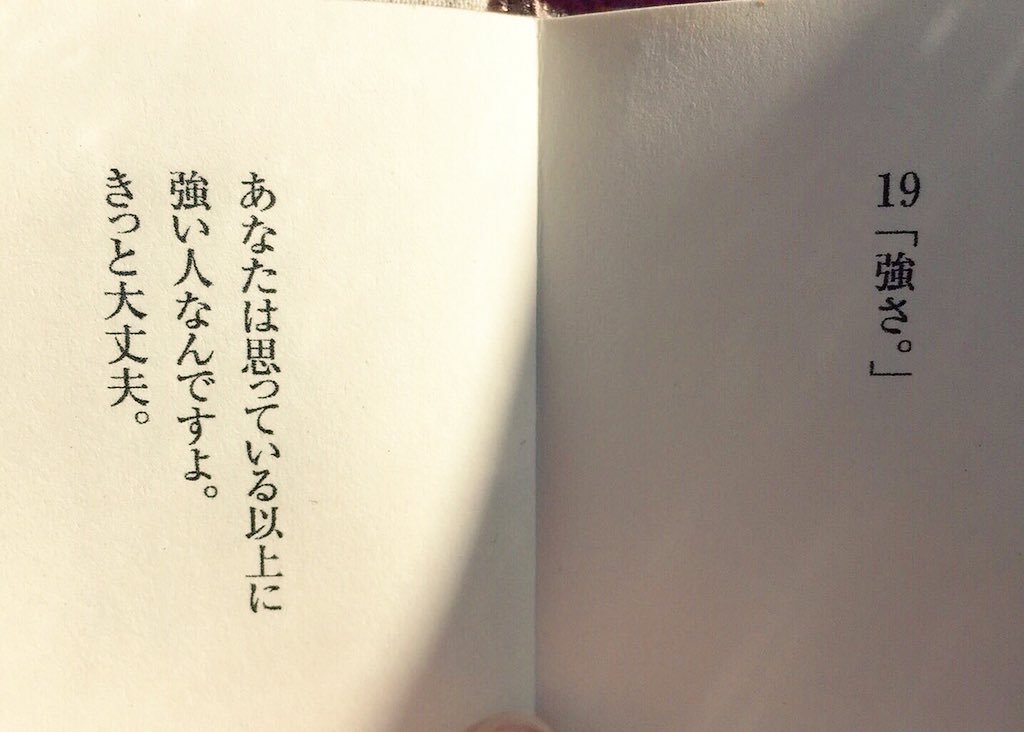 19「強さ。」
あなたは思っている以上に
強い人なんですよ。
きっと大丈夫。